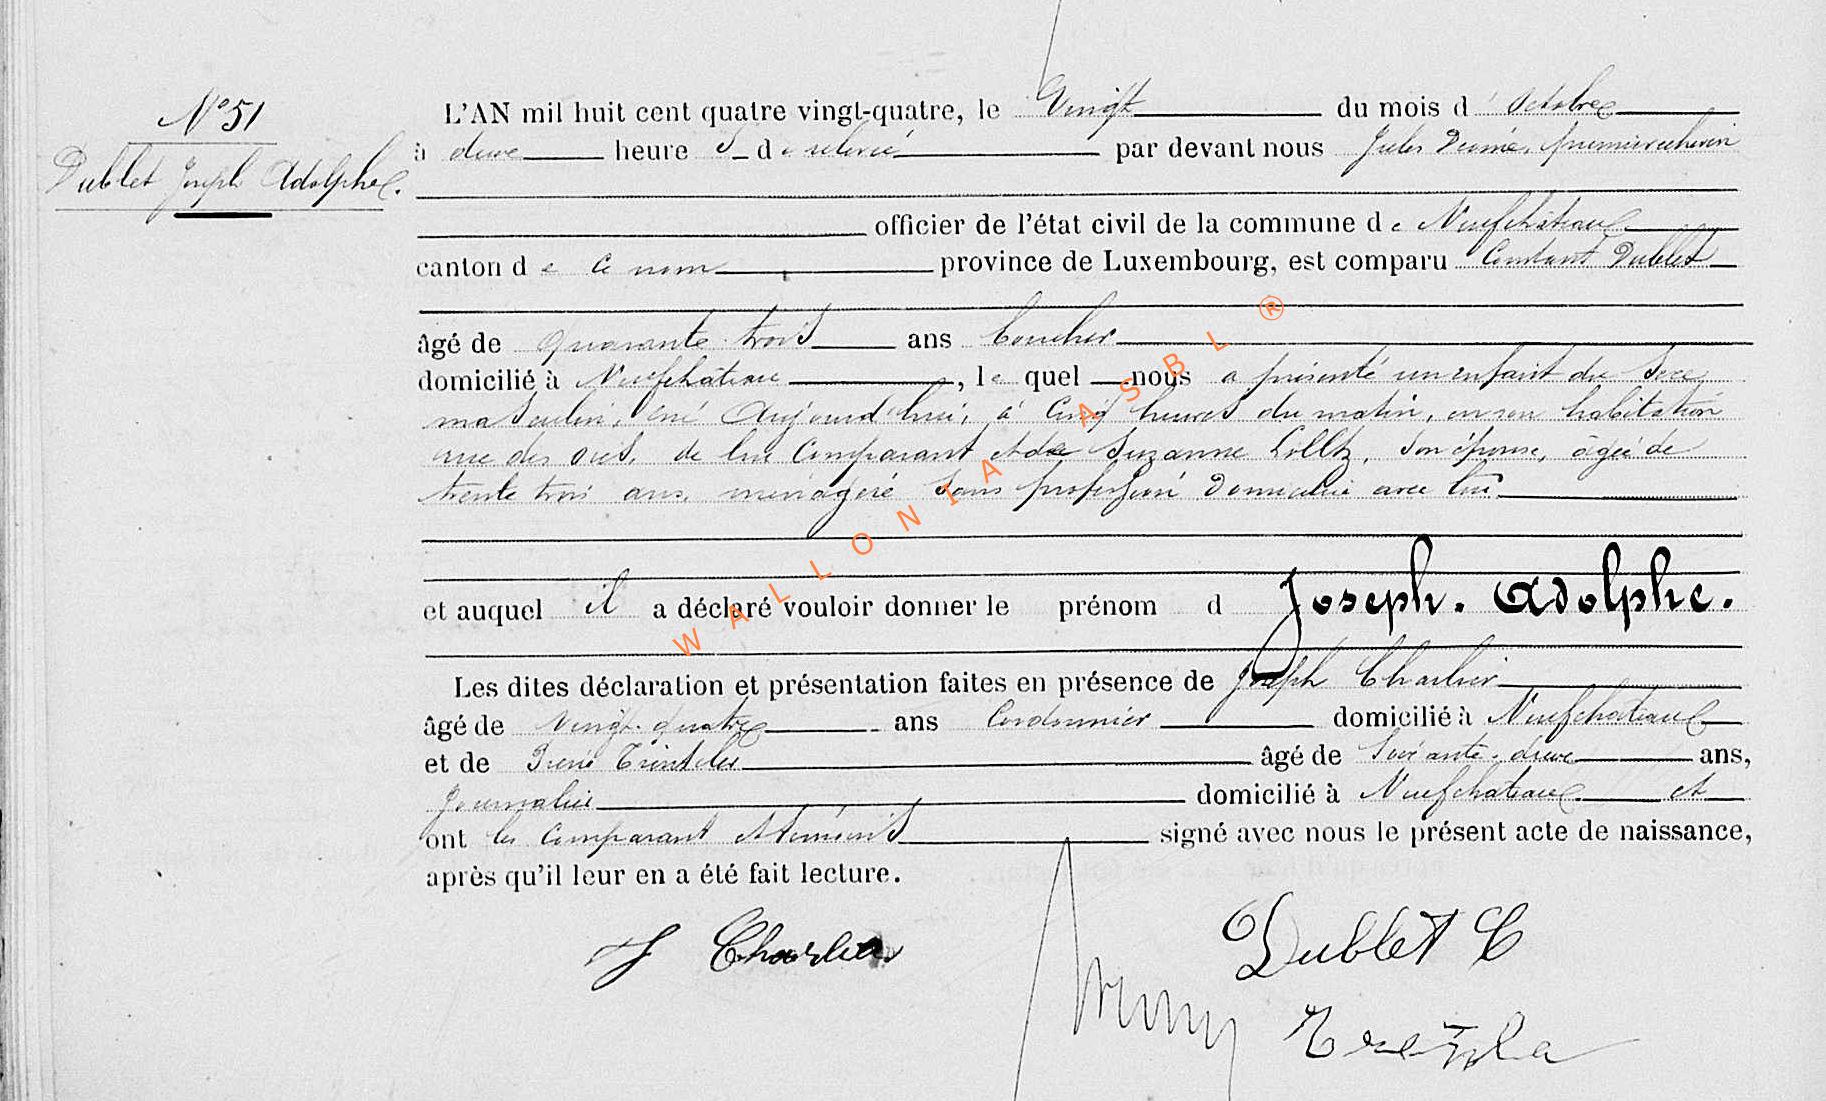 N° 51
Dublet Joseph Adolphe.
L'AN mil huit cent quatre vingt-quatre, le Vingt du mois d'Octobre
à deux heure s de relevé par devant nous Jules premier echevin
officier de l'état civil de la commune de Neufchâteau
canton de ce nom province de Luxembourg, est comparu Constant Dublet
âgé de quarante trois ans
domicilié à Neufchâteau, le quel nous a présenté un enfant du sexe
masculin, né Aujourd'hui, à cinq heures du matin, en son habitation
rue des de lui Comparant et de Suzanne son épouse, âgée de
trente trois ans, ménagère sans profession Domiciliée avec lui
et auquel il a déclaré vouloir donner le prénom d Joseph. Adolphe.
Les dites déclaration et présentation faites en présence de Joseph Charlier
âgé de vingt-quatre ans Cordonnier domicilié à Neufchateau
et de âgé de soixante-deux ans,
Journalier domicilié à Neufchateau et
ont les comparant et témoins signé avec nous le présent acte de naissance,
après qu'il leur en a été fait lecture.
J Charlier
Dublet C
WALLONIA ASBL ®